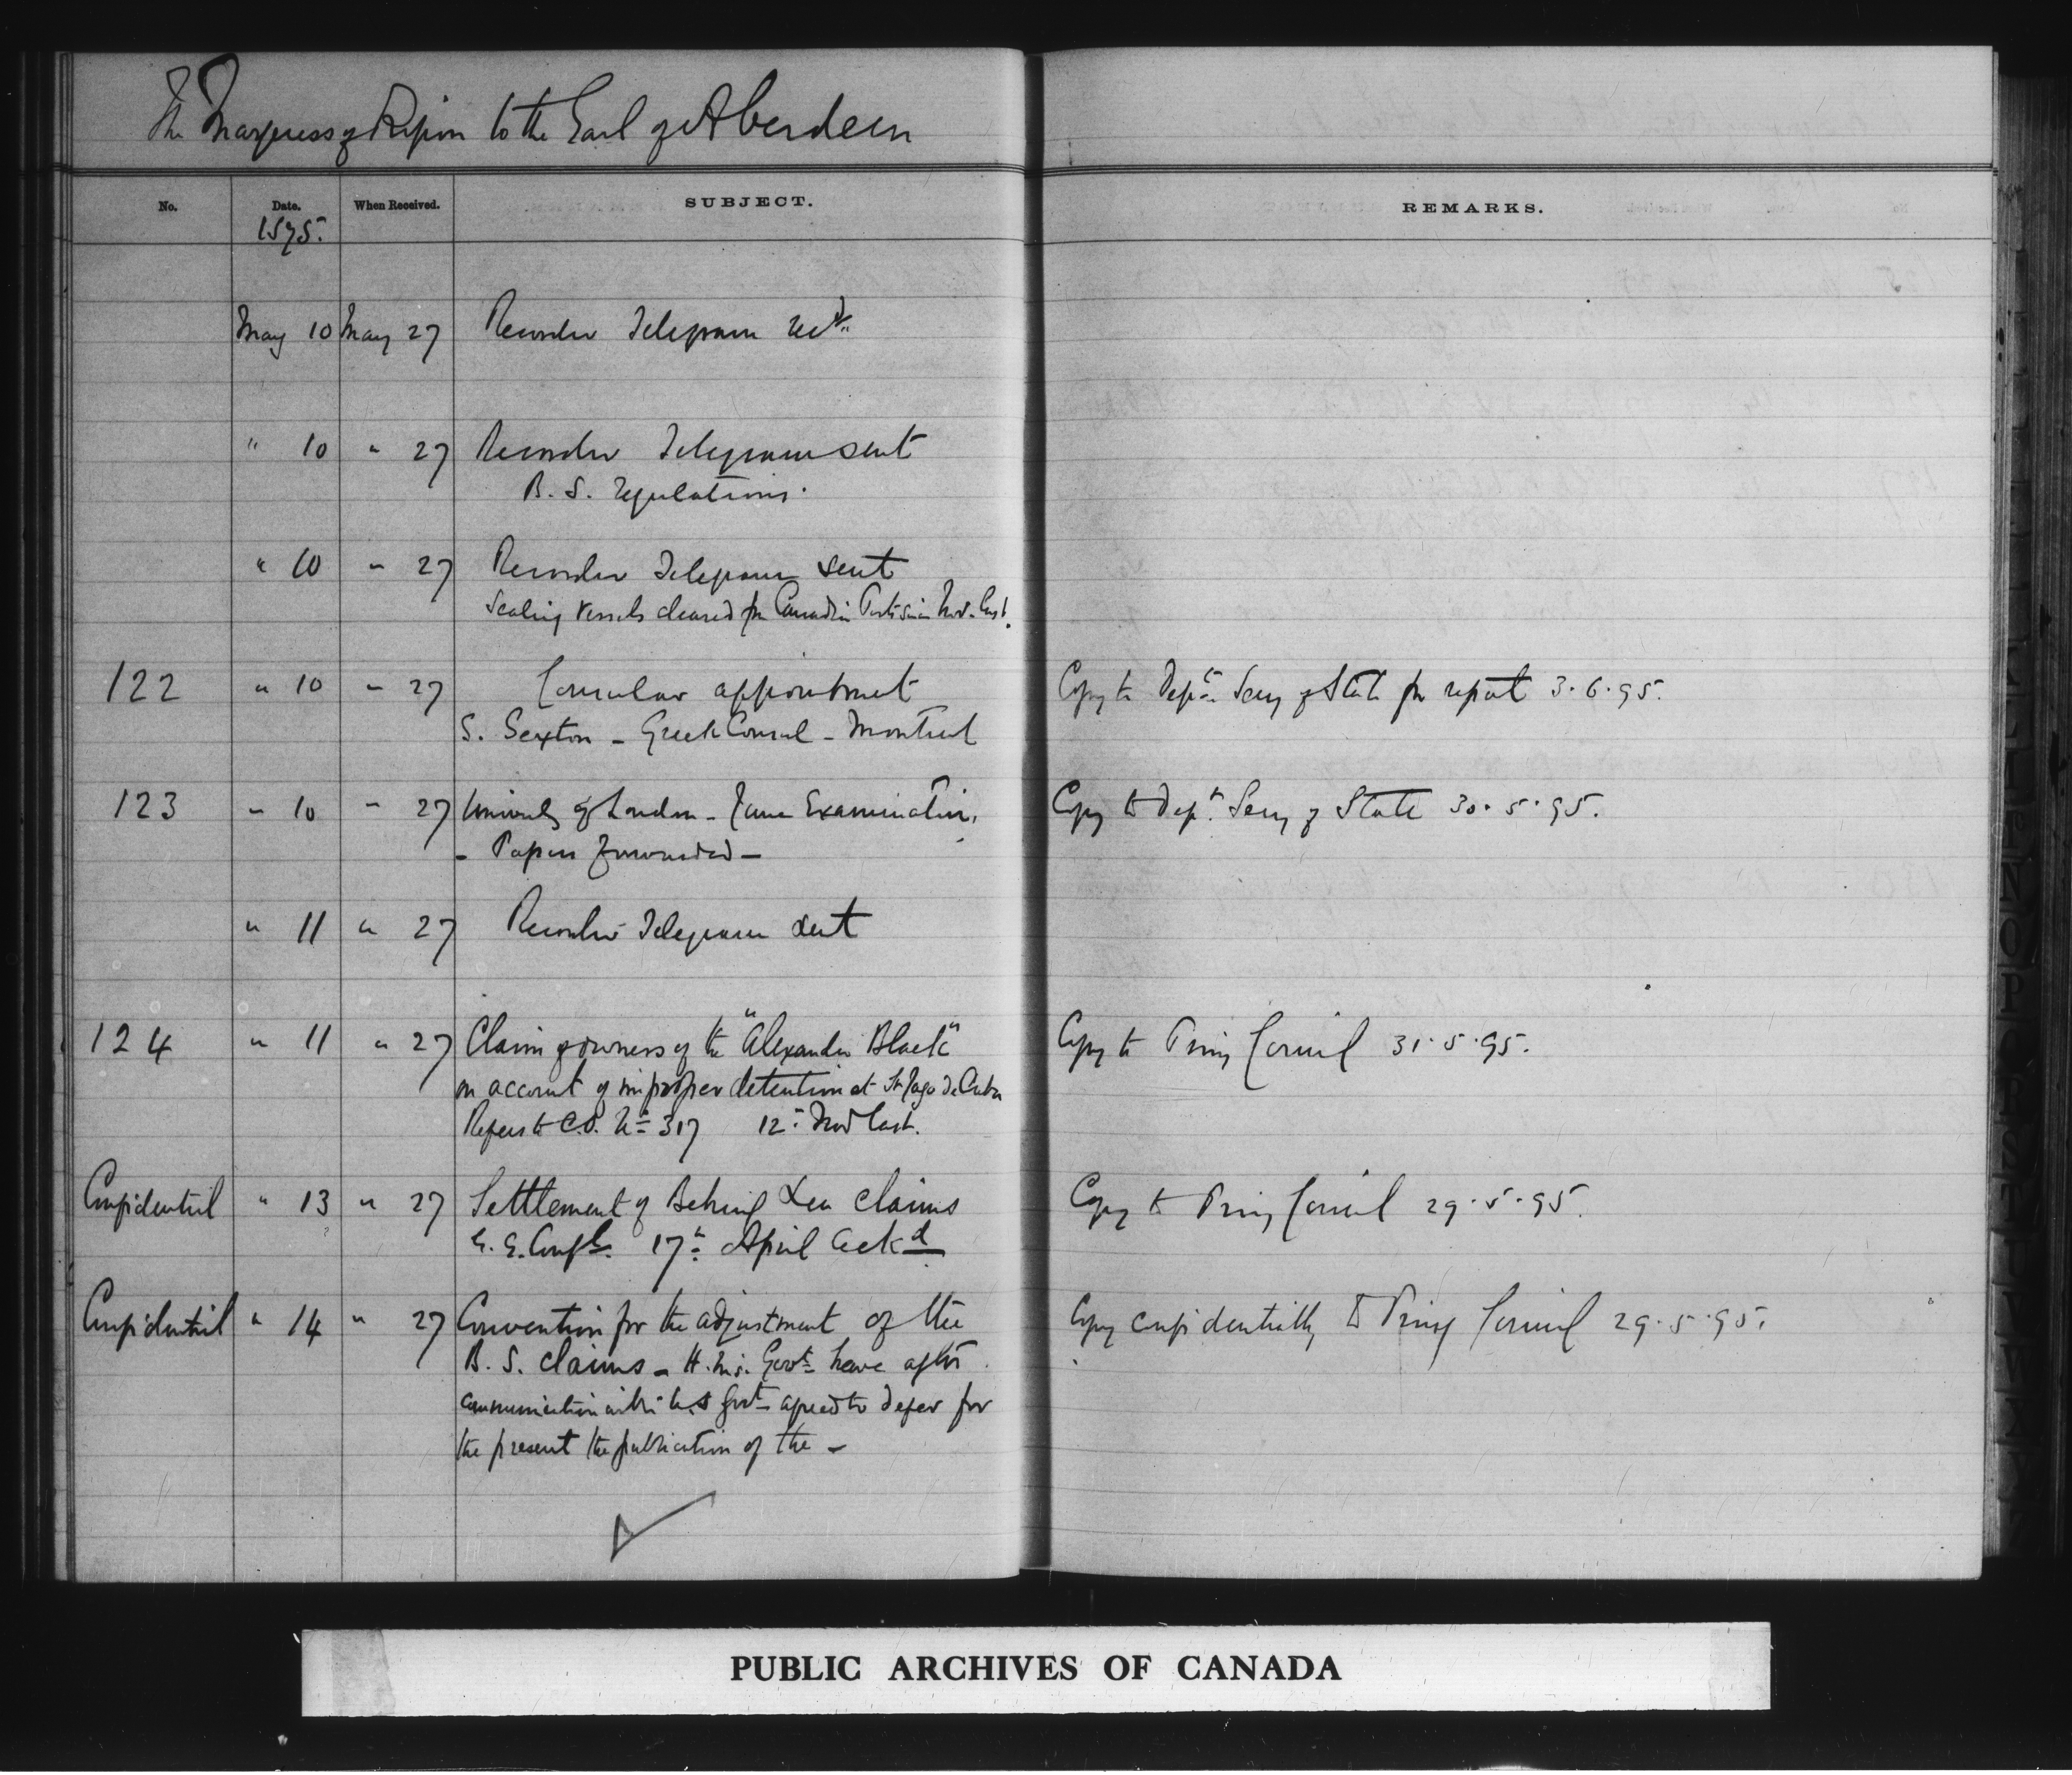 The Marquess of Ripon to the Earl of Aberdeen
No. Date. When Received. SUBJECT. REMARKS.
1895.
May 10 May 27 Recorder Telegram recd.
" 10 " 27 Recorder Telegram sent
B. S. regulations.
" 10 " 27 Recorder Telegram sent
Sealing vessels cleared for Canadian Ports since Nov. last.
122 " 10 " 27 Consular appointment Copy to Dept. Secy of State for report 3.6.95.
S. Sexton - Greek Consul - Montreal
123 " 10 " 27 University of London - June Examination, Copy to Dept. Secy of State 30.5.95.
- Papers forwarded -
" 11 " 27 Recorder Telegram sent
124 " 11 " 27 Claim of owners of the "Alexander Black" Copy to Privy Council 31.5.95.
on account of improper detention at St Jago de Cuba
Refers to C.O. No 317 12th Nov last.
Confidential " 13 " 27 Settlement of Behring Sea claims Copy to Privy Council 29.5.95.
G. G. Confl. 17th April ackd
Confidential " 14 " 27 Convention for the adjustment of the Copy confidentially to Privy Council 29.5.95.
B. S. claims - H.M's. Govt have after
communication with U.S Govt agreed to defer for
the present the publication of the -
PUBLIC ARCHIVES OF CANADA